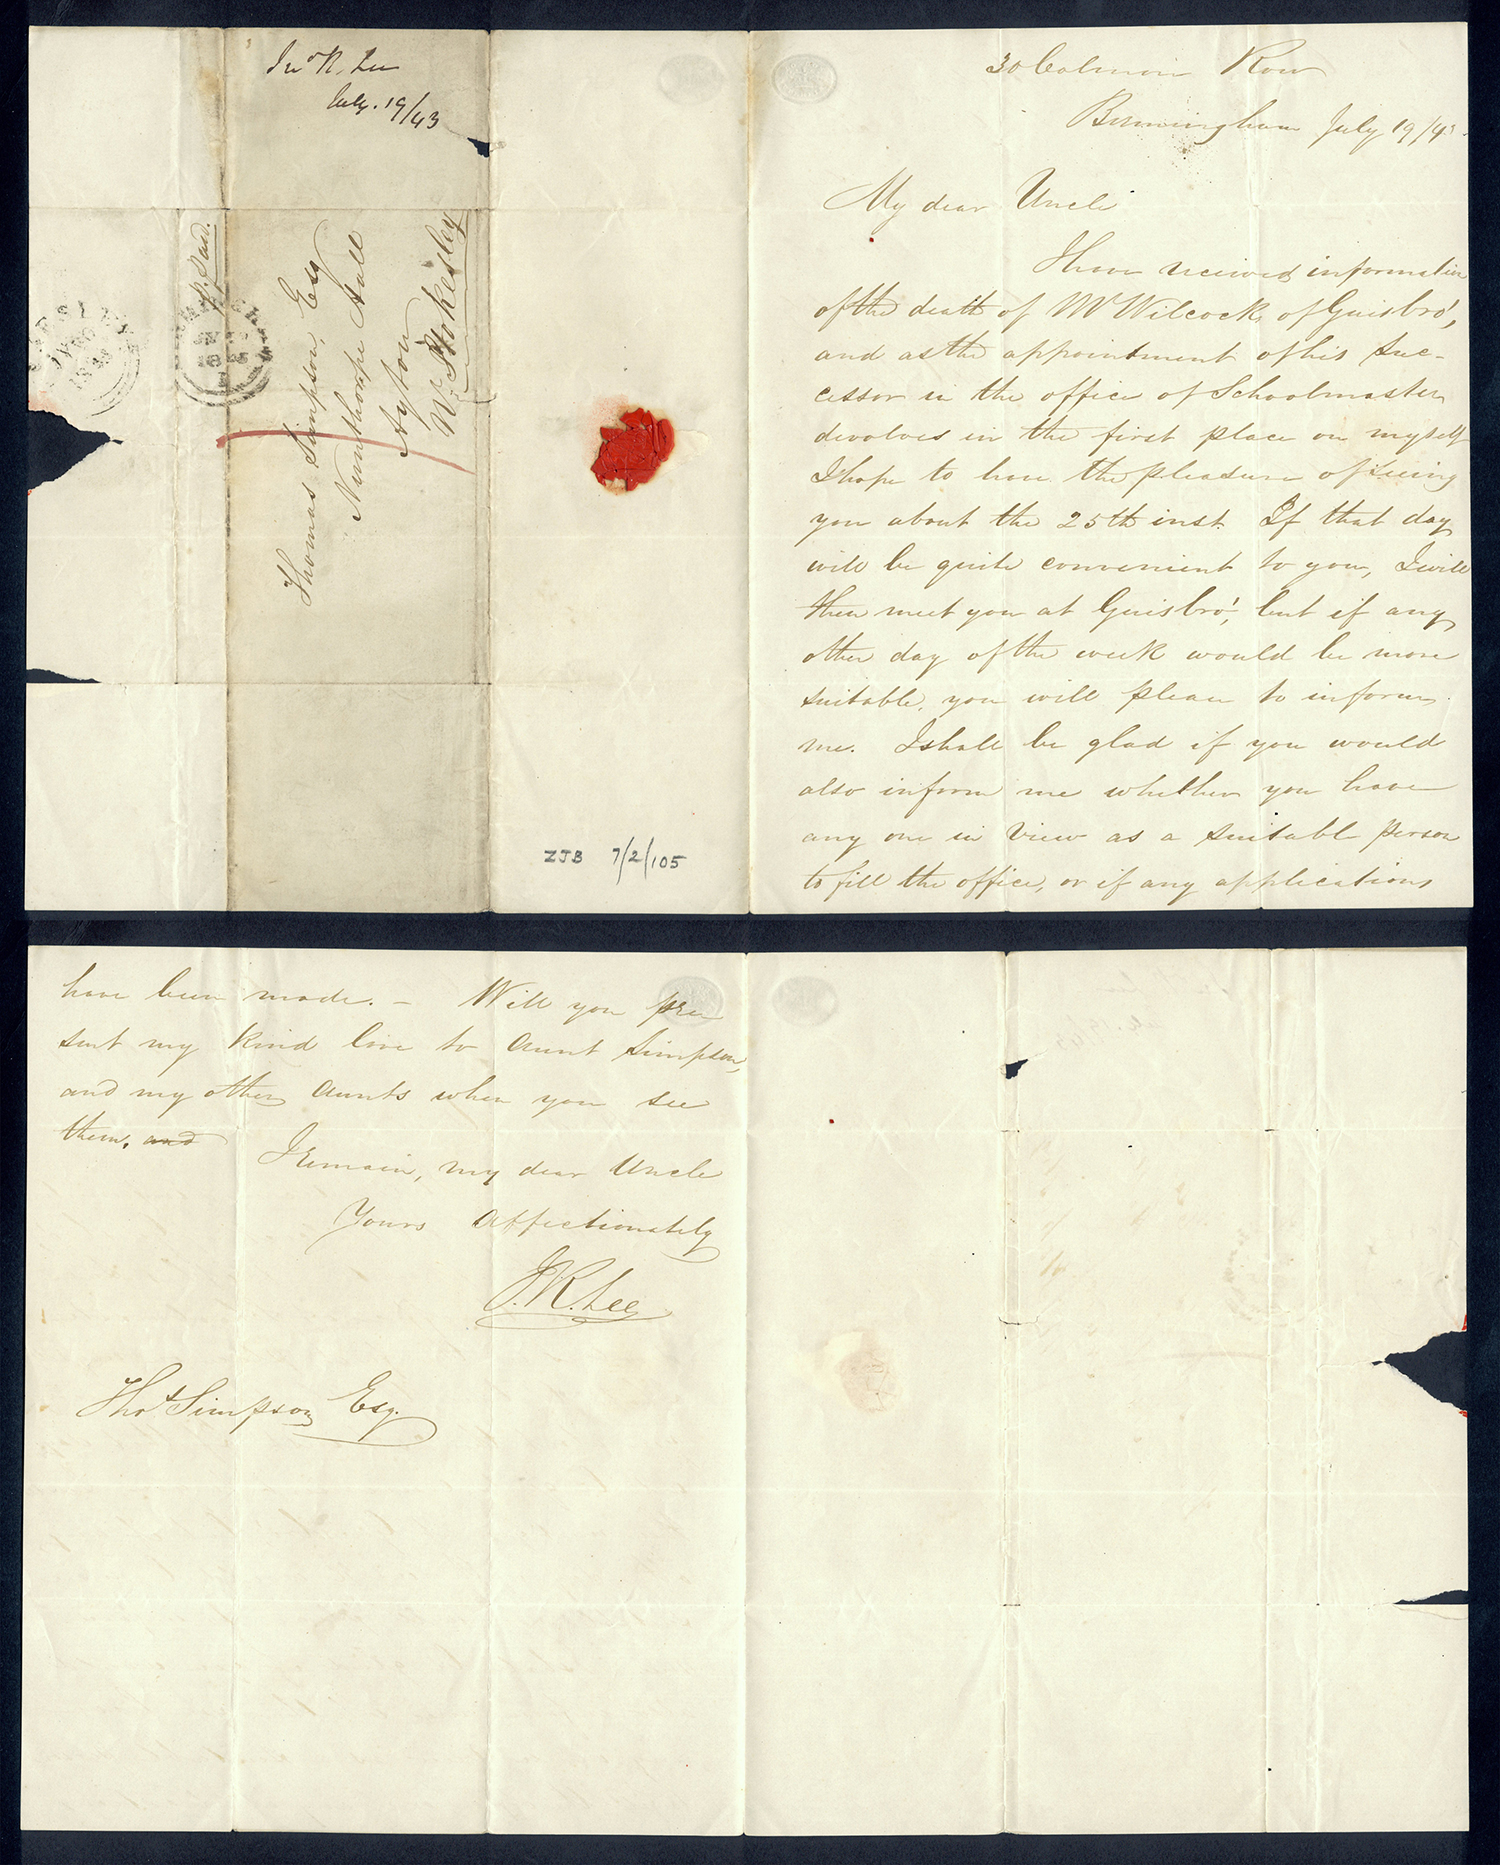 Jno R. Lee
July. 19/43
p. Paid.
Thomas Simpson, Esq
Nunthorpe Hall
Ayton
Nr. Stokesley
ZJB 7/2/105
30 Colmore Row
Birmingham July 19/43
My dear Uncle
I have received information
of the death of Mr Wilcock, of Guisbro',
and as the appointment of his suc-
cessor in the office of Schoolmaster,
devolves in the first place on myself
I hope to have the pleasure of seeing
you about the 25th inst. If that day
will be quite convenient to you, I will
then meet you at Guisbro', but if any
other day of the week would be more
suitable, you will please to inform
me. I shall be glad if you would
also inform me whether you have
any one in view as a suitable person
to fill the office, or if any applications
have been made. – Will you pre
sent my kind love to aunt Simpson,
and my other aunts when you see
them. and
I remain, my dear Uncle
Yours affectionately
J. R. Lee
Thos Simpson Esq.